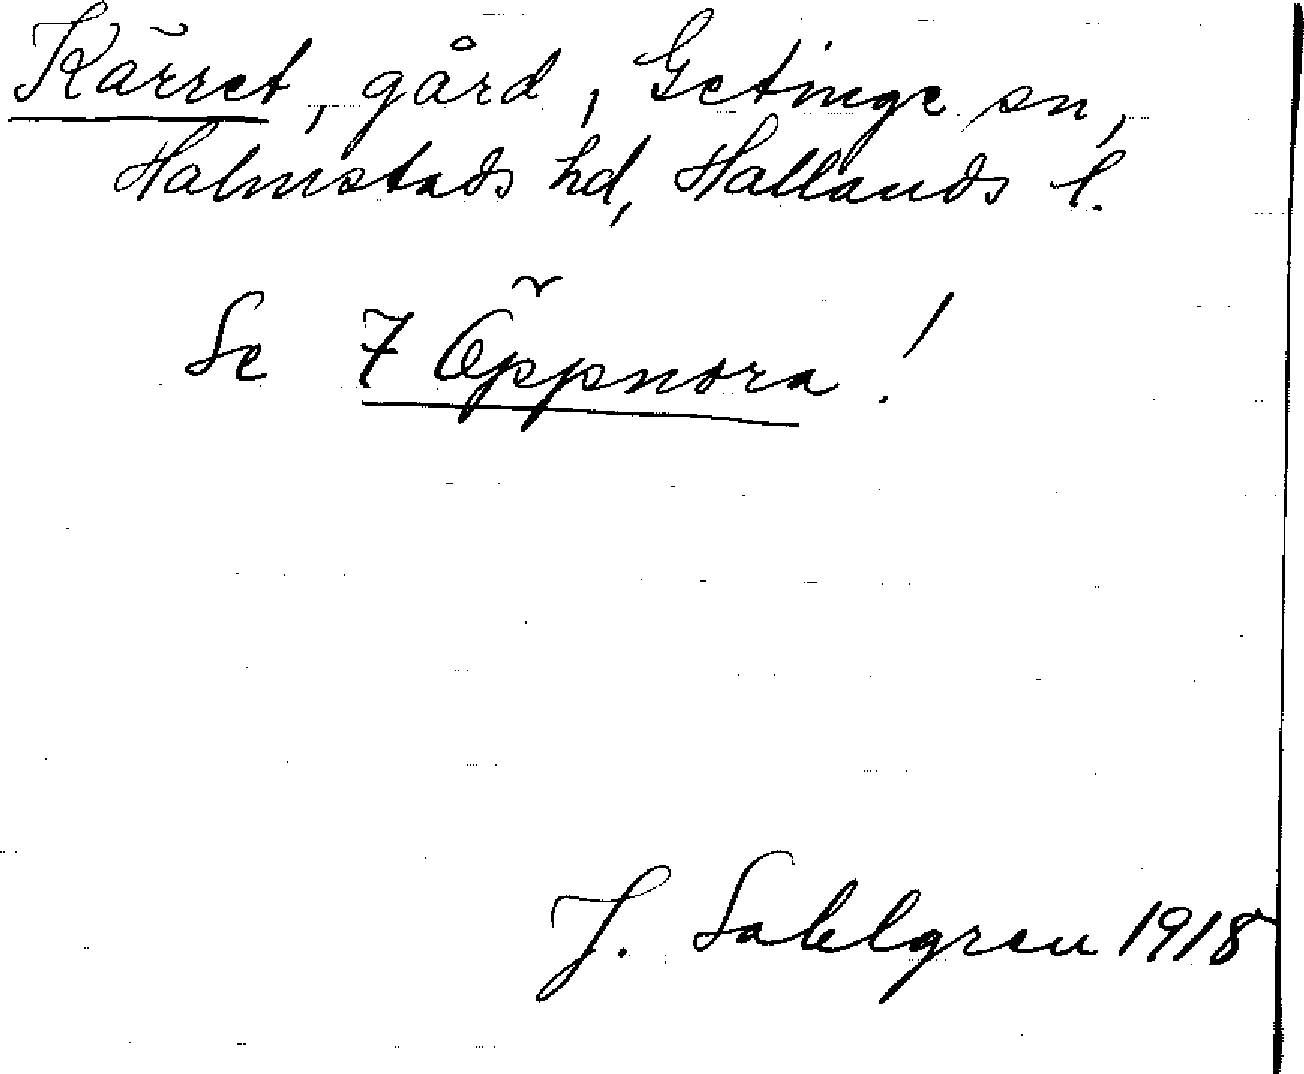 Kärret, gård, Getinge sn,
Halmstads hd, Hallands l.
Se 7 Öppnora!
J. Sahlgren 1918